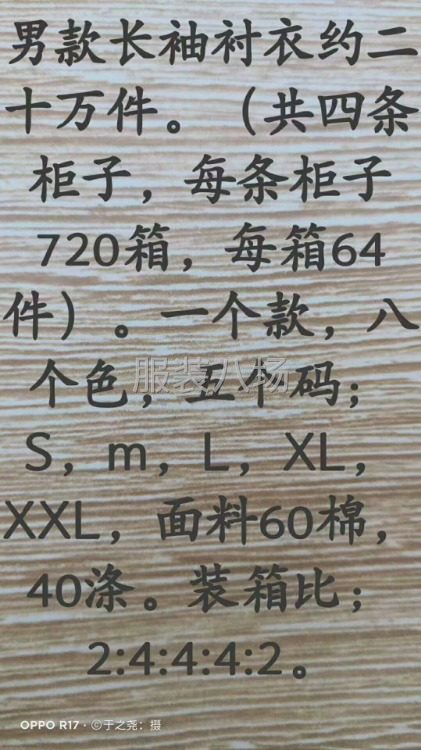 男款长袖衬衣约二
十万件。（共四条
柜子，每条柜子
720箱，每箱64
件）。一个款，八
个色，五个码；
服装八场
S，m，L，XL，
XXL，面料60棉，
40涤。装箱比；
2:4:4:4:2。
OPPO R17·©于之尧：摄